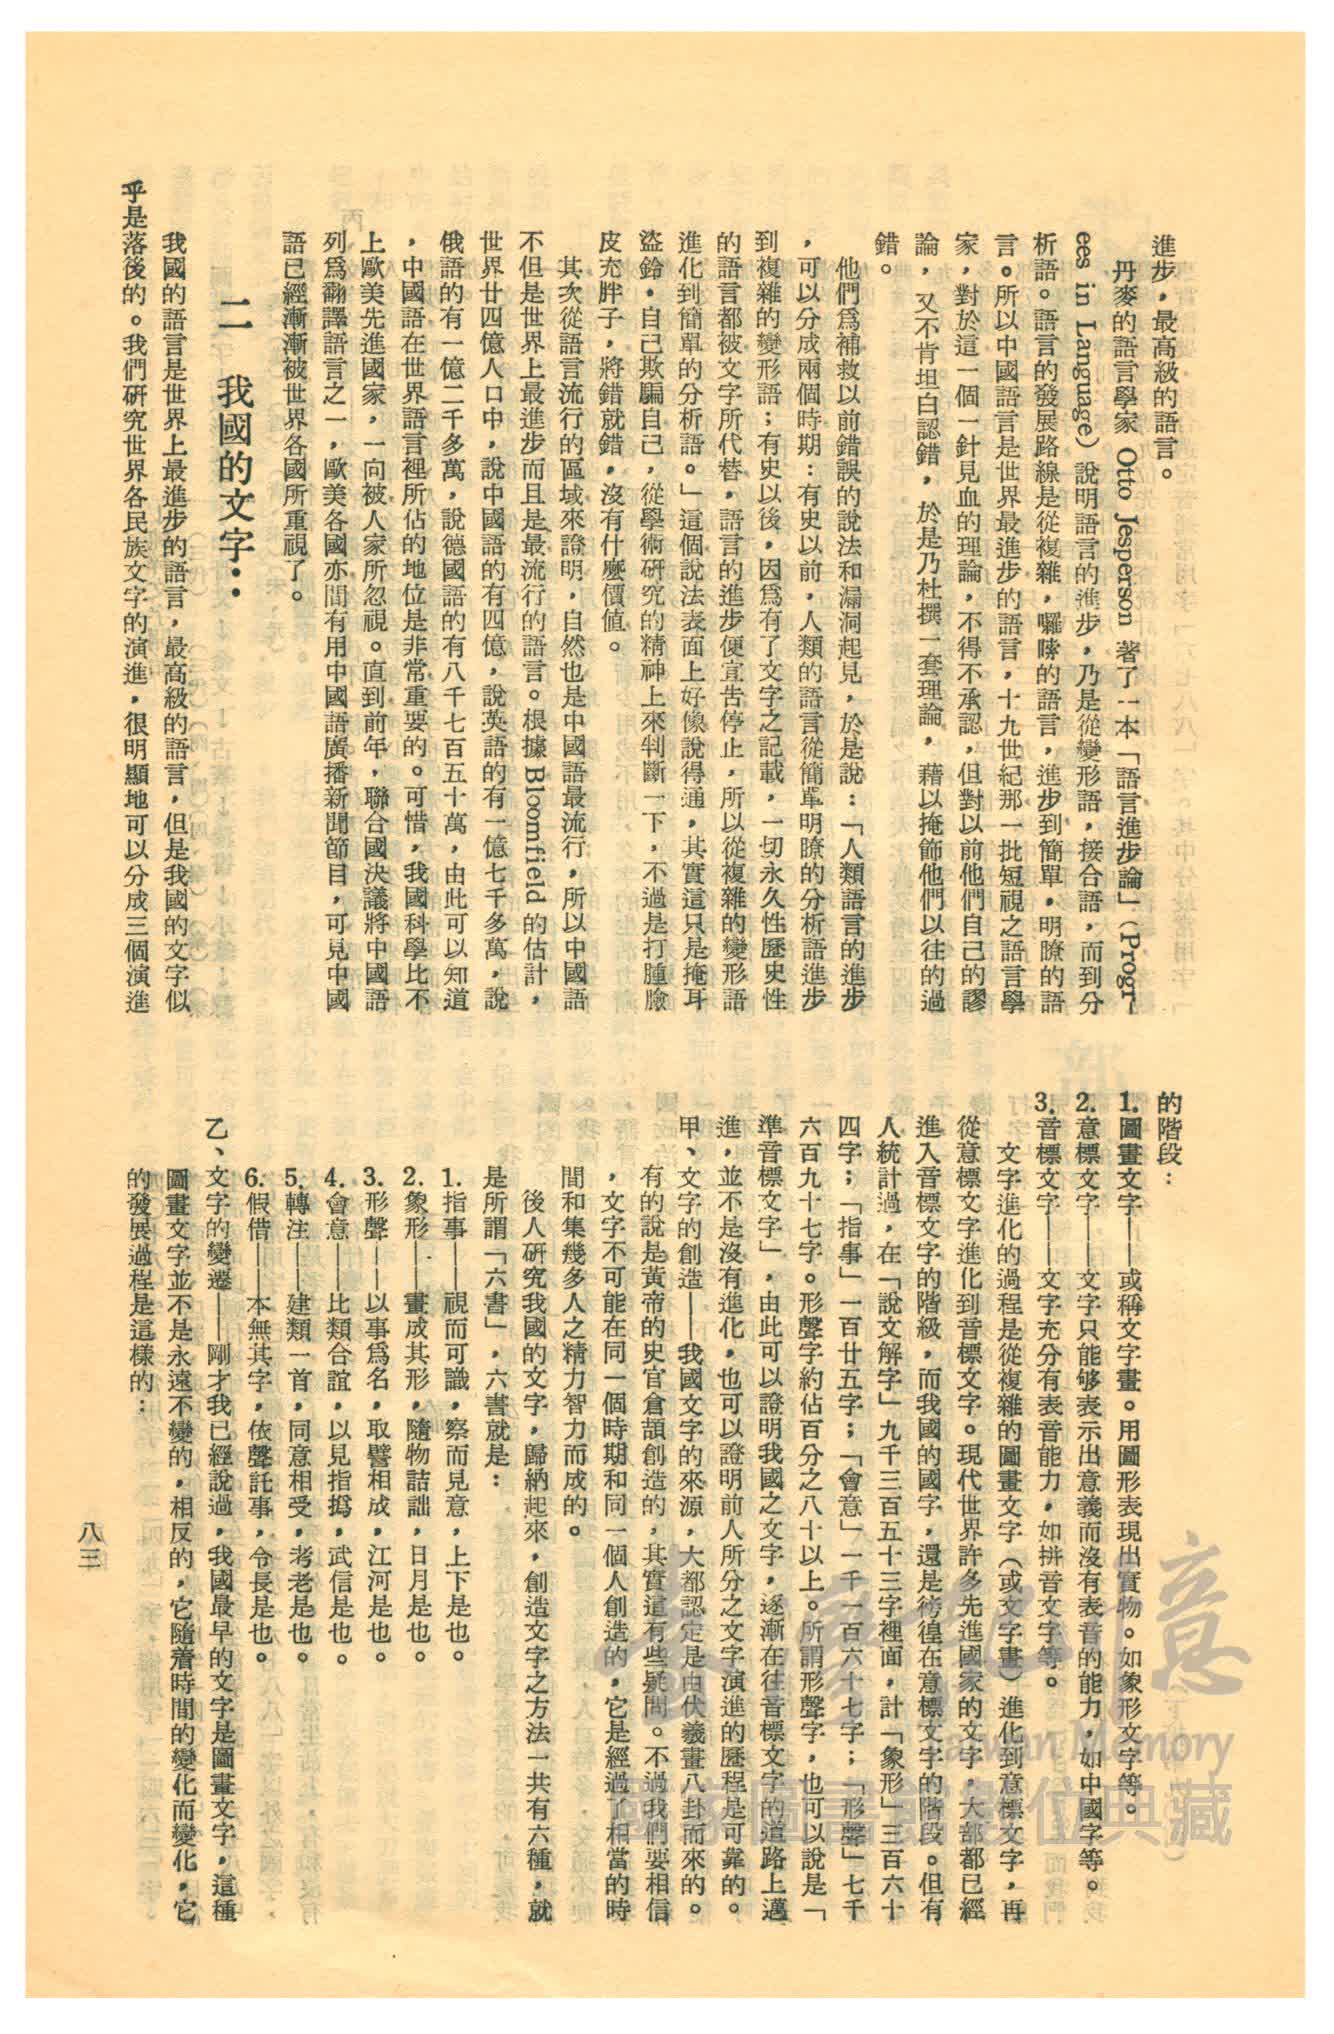 進步，最高級的語言。
丹麥的語言學家 Otto Jesperson 著了一本「語言進步論」（Progr-
ees in Language）說明語言的進步，乃是從變形語，接合語，而到分
析語。語言的發展路線是從複雜，囉嗦的語言，進步到簡單，明瞭的語
言。所以中國語言是世界最進步的語言，十九世紀那一批短視之語言學
家，對於這一個一針見血的理論，不得不承認，但對以前他們自己的謬
論，又不肯坦白認錯，於是乃杜撰一套理論，藉以掩飾他們以往的過
錯。
他們爲補救以前錯誤的說法和漏洞起見，於是說：「人類語言的進步
，可以分成兩個時期：有史以前，人類的語言從簡單明瞭的分析語進步
到複雜的變形語；有史以後，因爲有了文字之記載，一切永久性歷史性
的語言都被文字所代替，語言的進步便宣告停止，所以從複雜的變形語
進化到簡單的分析語。」這個說法表面上好像說得通，其實這只是掩耳
盜鈴，自己欺騙自己，從學術研究的精神上來判斷一下，不過是打腫臉
皮充胖子，將錯就錯，沒有什麼價值。
其次從語言流行的區域來證明，自然也是中國語最流行，所以中國語
不但是世界上最進步而且是最流行的語言。根據 Bloomfield 的估計，
世界廿四億人口中，說中國語的有四億，說英語的有一億七千多萬，說
俄語的有一億二千多萬，說德國語的有八千七百五十萬，由此可以知道
，中國語在世界語言裡所佔的地位是非常重要的。可惜，我國科學比不
上歐美先進國家，一向被人家所忽視。直到前年，聯合國決議將中國語
列爲翻譯語言之一，歐美各國亦間有用中國語廣播新聞節目，可見中國
語已經漸漸被世界各國所重視了。
二　我國的文字：
我國的語言是世界上最進步的語言，最高級的語言，但是我國的文字似
乎是落後的。我們研究世界各民族文字的演進，很明顯地可以分成三個演進
的階段：
1.圖畫文字——或稱文字畫。用圖形表現出實物。如象形文字等。
2.意標文字——文字只能够表示出意義而沒有表音的能力，如中國字等。
3.音標文字——文字充分有表音能力，如拼音文字等。
文字進化的過程是從複雜的圖畫文字（或文字畫）進化到意標文字，再
從意標文字進化到音標文字。現代世界許多先進國家的文字，大部都已經
進入音標文字的階級，而我國的國字，還是徬徨在意標文字的階段。但有
人統計過，在「說文解字」九千三百五十三字裡面，計「象形」三百六十
四字；「指事」一百廿五字；「會意」一千一百六十七字；「形聲」七千
六百九十七字。形聲字約佔百分之八十以上。所謂形聲字，也可以說是「
準音標文字」，由此可以證明我國之文字，逐漸在往音標文字的道路上邁
進，並不是沒有進化，也可以證明前人所分之文字演進的歷程是可靠的。
甲、文字的創造——我國文字的來源，大都認定是由伏羲畫八卦而來的。
有的說是黃帝的史官倉頡創造的，其實這有些疑問。不過我們要相信
，文字不可能在同一個時期和同一個人創造的，它是經過了相當的時
間和集幾多人之精力智力而成的。
後人研究我國的文字，歸納起來，創造文字之方法一共有六種，就
是所謂「六書」，六書就是：
1.指事——視而可識，察而見意，上下是也。
2.象形——畫成其形，隨物詰詘，日月是也。
3.形聲——以事爲名，取譬相成，江河是也。
4.會意——比類合誼，以見指撝，武信是也。
5.轉注——建類一首，同意相受，考老是也。
6.假借——本無其字，依聲託事，令長是也。
乙、文字的變遷——剛才我已經說過，我國最早的文字是圖畫文字，這種
圖畫文字並不是永遠不變的，相反的，它隨着時間的變化而變化，它
的發展過程是這樣的：
八三
臺灣記憶
Taiwan Memory
國家圖書館數位典藏